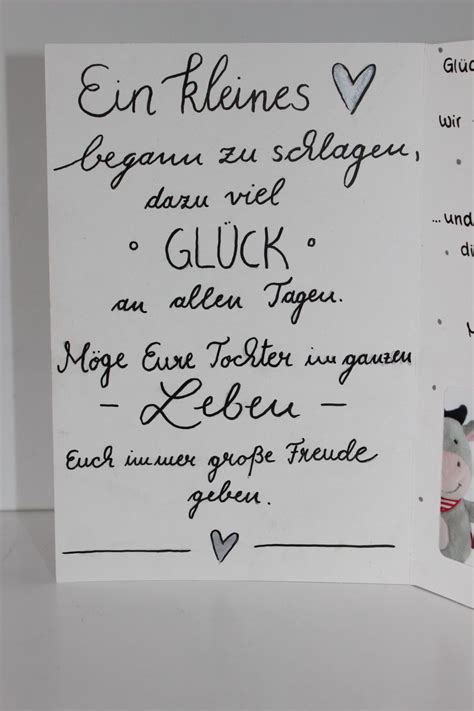 Ein kleines
begann zu schlagen,
dazu viel
GLÜCK
an allen Tagen.
Möge Eure Tochter im ganzen
– Leben –
Euch immer große Freude
geben.
Glüc
Wir
...und
di